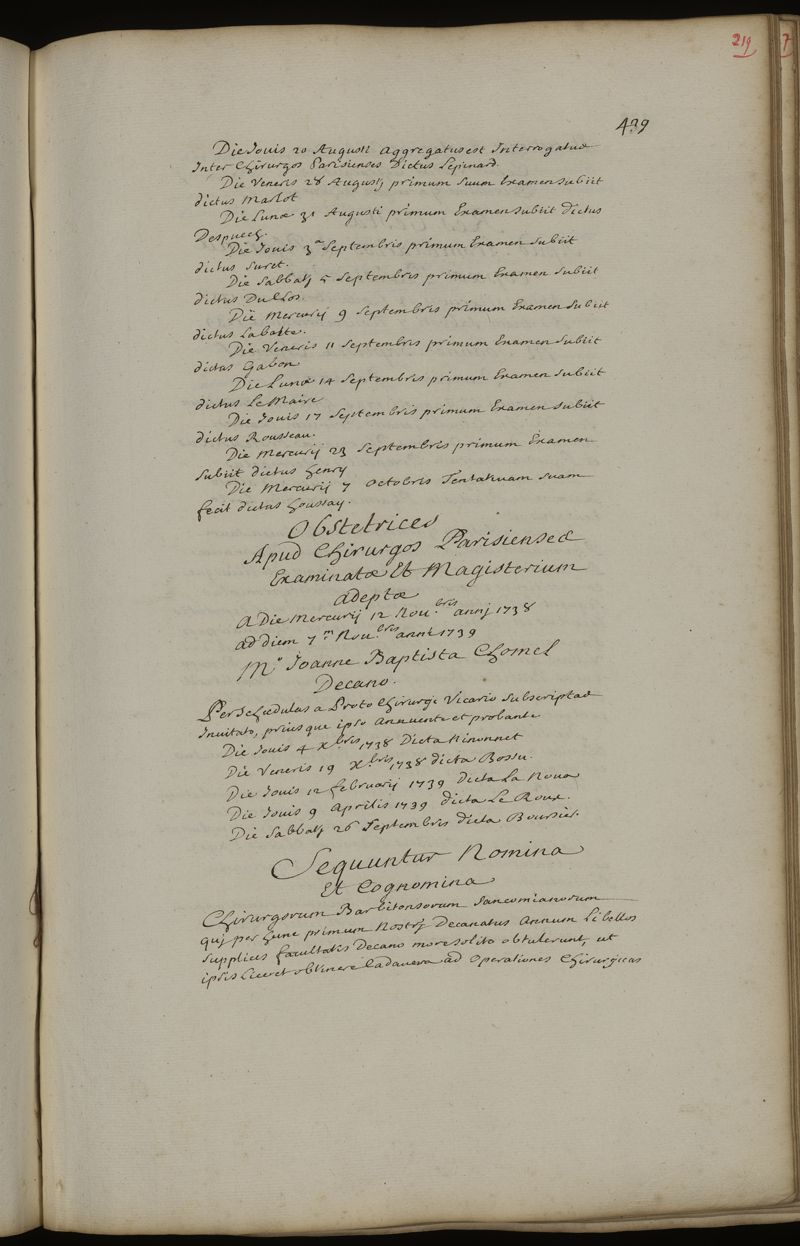 219
7
439
Die Jouis 20 Augusti Aggregatus est Interrogatus
Inter Chirurgos Parisienses Dictus Lepinard.
Die Veneris 28 Augustj primum suum Examen subiit
dictus Marlot
Die Lunæ 31 Augusti primum Examen subiit dictus
Despuech.
Die Jouis 3a Septembris primum Examen subiit
dictus Suret.
Die Sabbatj 5 Septembris primum Examen subiit
dictus Dullos.
Die Mercurij 9 Septembris primum Examen subiit
dictus Labatte.
Die Veneris 11 Septembris primum Examen subiit
dictus Gabon
Die Lunæ 14 Septembris primum Examen subiit
dictus Le Maire
Die Jouis 17 Septembris primum Examen subiit
dictus Rousseau.
Die Mercurij 23 Septembris primum Examen
subiit dictus henry
Die Mercurij 7 Octobris Tentatiuam suam
fecit dictus houssay.
Obstetrices
Apud Chirurgos Parisienses
Examinatæ Et Magisterium
adeptæ
A Die Mercurij 12 Nou.bris annj 1738
ad diem 7m Nou.bris anni 1739
Mo Joanne Baptista Chomel
Decano.
Per Schedulas a Proto Chirurgi Vicario subscriptas
Inuitato, priusque ipso annuente et probante
Die Jouis 4 Xbris 1738 Dicta Ninonnet
Die Veneris 19 Xbris 1738 dicta Bossu.
Die Jouis 12 februarij 1739 Dicta La Noua
Die Jouis 9 Aprilis 1739 dicta Le Roux.
Die Sabbatj 26 Septembris dicta Boursier.
Sequuntur Nomina
Et Cognomina
Chirurgorum Barbitonsorum Sancomianorum
quj per hunc primum Nostrj Decanatus Annum Libellos
supplices facultatis Decano more solito obtulerunt, ut
ipsis Liceret obtinere Cadauera ad Operationes Chirurgicas